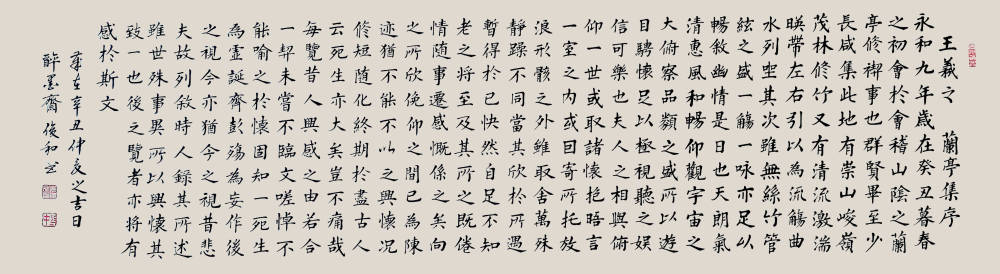 王羲之 蘭亭集序
永和九年歲在癸丑暮春
之初會於會稽山陰之蘭
亭修禊事也群賢畢至少
長咸集此地有崇山峻嶺
茂林修竹又有清流激湍
暎帶左右引以為流觴曲
水列坐其次雖無絲竹管
絃之盛一觴一咏亦足以
暢敘幽情是日也天朗氣
清惠風和暢仰觀宇宙之
大俯察品類之盛所以遊
目騁懷足以極視聽之娛
信可樂也夫人之相與俯
仰一世或取諸懷抱晤言
一室之內或因寄所托放
浪形骸之外雖取舍萬殊
靜躁不同當其欣於所遇
暫得於己快然自足不知
老之將至及其所之既倦
情隨事遷感慨係之矣向
之所欣俛仰之間已為陳
迹猶不能不以之興懷況
修短隨化終期於盡古人
云死生亦大矣豈不痛哉
每覽昔人興感之由若合
一契未嘗不臨文嗟悼不
能喻之於懷固知一死生
為虛誕齊彭殤為妄作後
之視今亦猶今之視昔悲
夫故列敘時人錄其所述
雖世殊事異所以興懷其
致一也後之覽者亦將有
感於斯文
歲在辛丑仲夏之吉日
醉墨齋俊和書